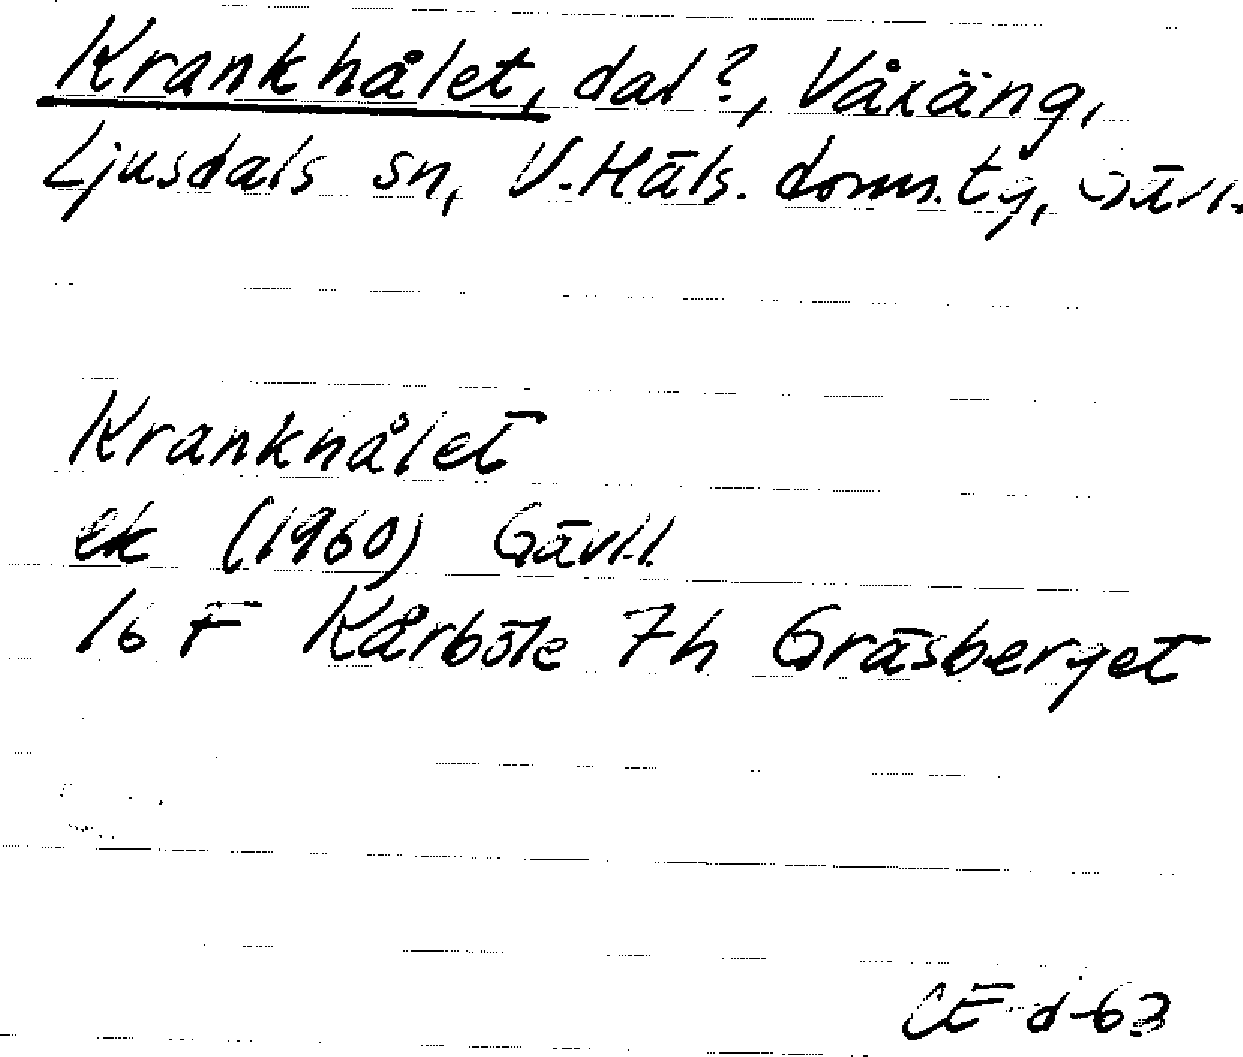 Krankhålet, dal?, Våxäng,
Ljusdals sn, V. Häls. doms. tg, Gävl.
Krankhålet
ek (1960) Gävl.l.
16 F Kårböle 7h Gräsberget
CE d-63